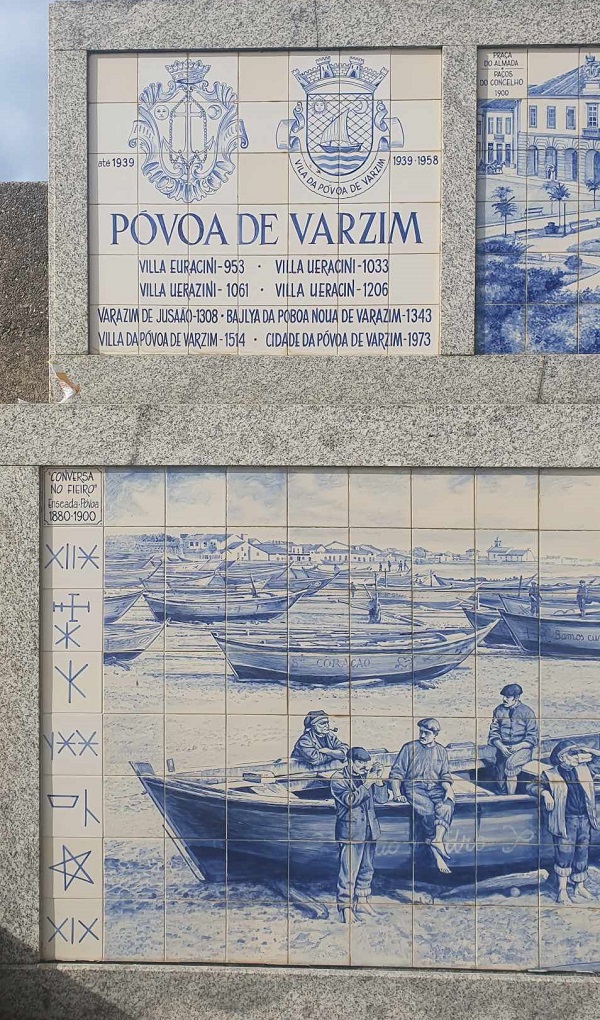 PRAÇA
DO ALMADA
•
PAÇOS
DO CONCELHO
1900
até 1939
VILA DA PÓVOA DE VARZIM
1939-1958
PÓVOA DE VARZIM
VILLA EURACINI-953 • VILLA UERACINI-1033
VILLA UERAZINI-1061 • VILLA UERACIN-1206
VARAZIM DE JUSAÃO-1308 • BAJLYA DA POBOA NOUA DE VARAZIM-1343
VILLA DA PÓVOA DE VARZIM-1514 • CIDADE DA PÓVOA DE VARZIM-1973
"CONVERSA
NO FIEIRO"
Enseada-Póvoa
1880-1900
CORAÇÃO
Bamos cu